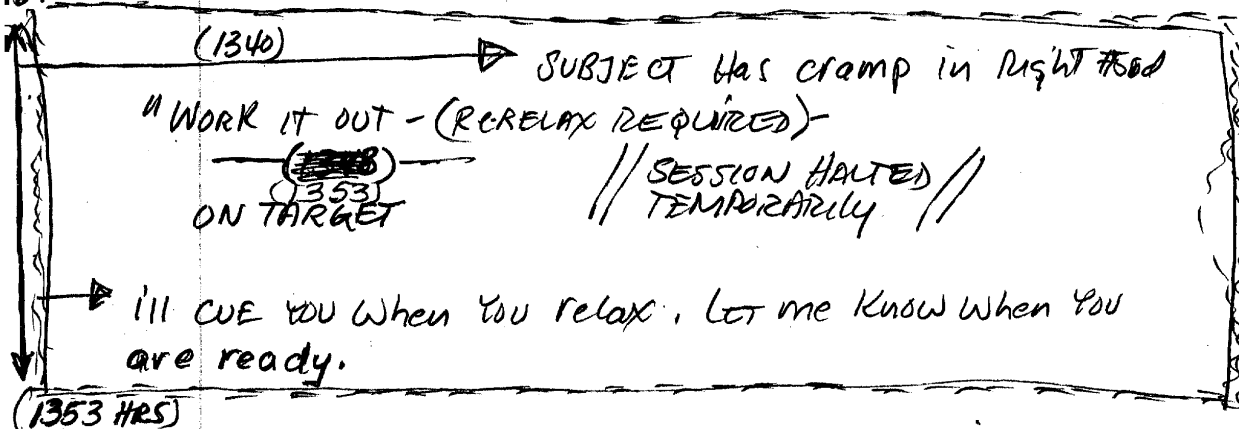 (1340) SUBJECT Has cramp in Right
"WORK IT OUT - (RERELAX REQUIRED)-
(1353) // SESSION HALTED //
ON TARGET TEMPORARILY
i'll CUE YOU When You relax. LET me Know When You
are ready.
(1353 HRS)